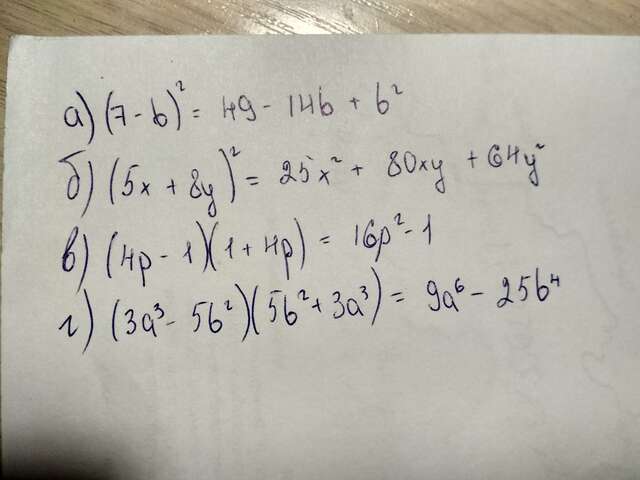 а) (7 - b)² = 49 - 14b + b²
б) (5x + 8y)² = 25x² + 80xy + 64y²
в) (4p - 1)(1 + 4p) = 16p² - 1
г) (3a³ - 5b²)(5b² + 3a³) = 9a⁶ - 25b⁴